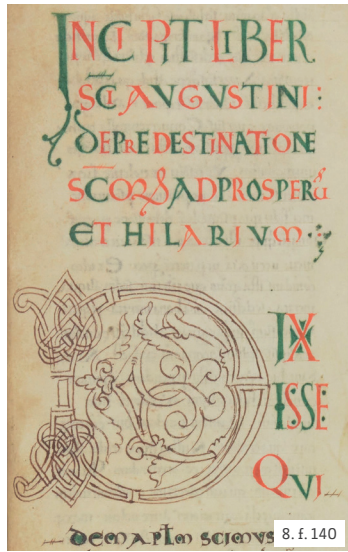 INCIPIT LIBER
SCĪ AVGVSTINI:
DE PREDESTINATIONE
SC̄OꝜ AD PROSPERŪ
ET HILARIVM
DIX
ISSE
QVI
DEM APŁM SCIMVS
8. f. 140